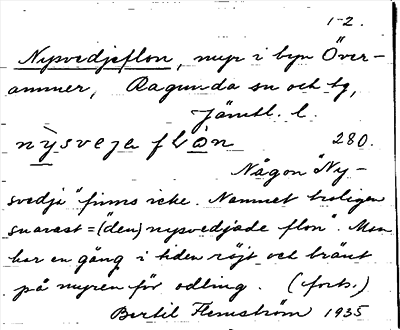 1-2.
Nysvedjeflon, myr i byn Över-
ammer, Ragunda sn och tg,
Jämtl. l.
nỳsveje flòn 280.
Någon "Ny-
svedje" finns icke. Namnet troligen
snarast = (den) nysvedjade flon". Man
har en gång i tiden röjt och bränt
på myren för odling. (forts.)
Bertil Flemström 1935